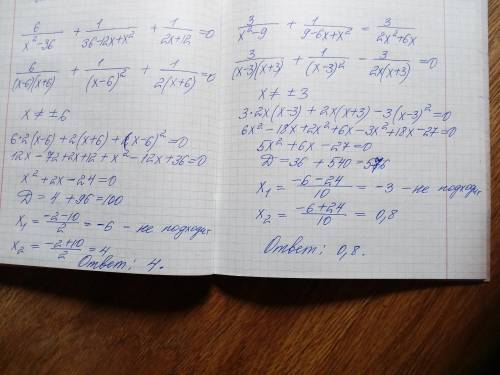 6/(x²-36) + 1/(36-12x+x²) + 1/(2x+12) = 0
6/((x-6)(x+6)) + 1/(x-6)² + 1/(2(x+6)) = 0
x ≠ ±6
6·2(x-6)+2(x+6)+(x-6)²=0
12x-72+2x+12+x²-12x+36=0
x²+2x-24=0
D=4+96=100
x₁=(-2-10)/2=-6 - не подходит
x₂=(-2+10)/2=4
Ответ: 4.
3/(x²-9) + 1/(9-6x+x²) = 3/(2x²+6x)
3/((x-3)(x+3)) + 1/(x-3)² - 3/(2x(x+3)) = 0
x ≠ ±3
3·2x(x-3)+2x(x+3)-3(x-3)²=0
6x²-18x+2x²+6x-3x²+18x-27=0
5x²+6x-27=0
D=36+540=576
x₁=(-6-24)/10=-3 - не подходит
x₂=(-6+24)/10=0,8
Ответ: 0,8.